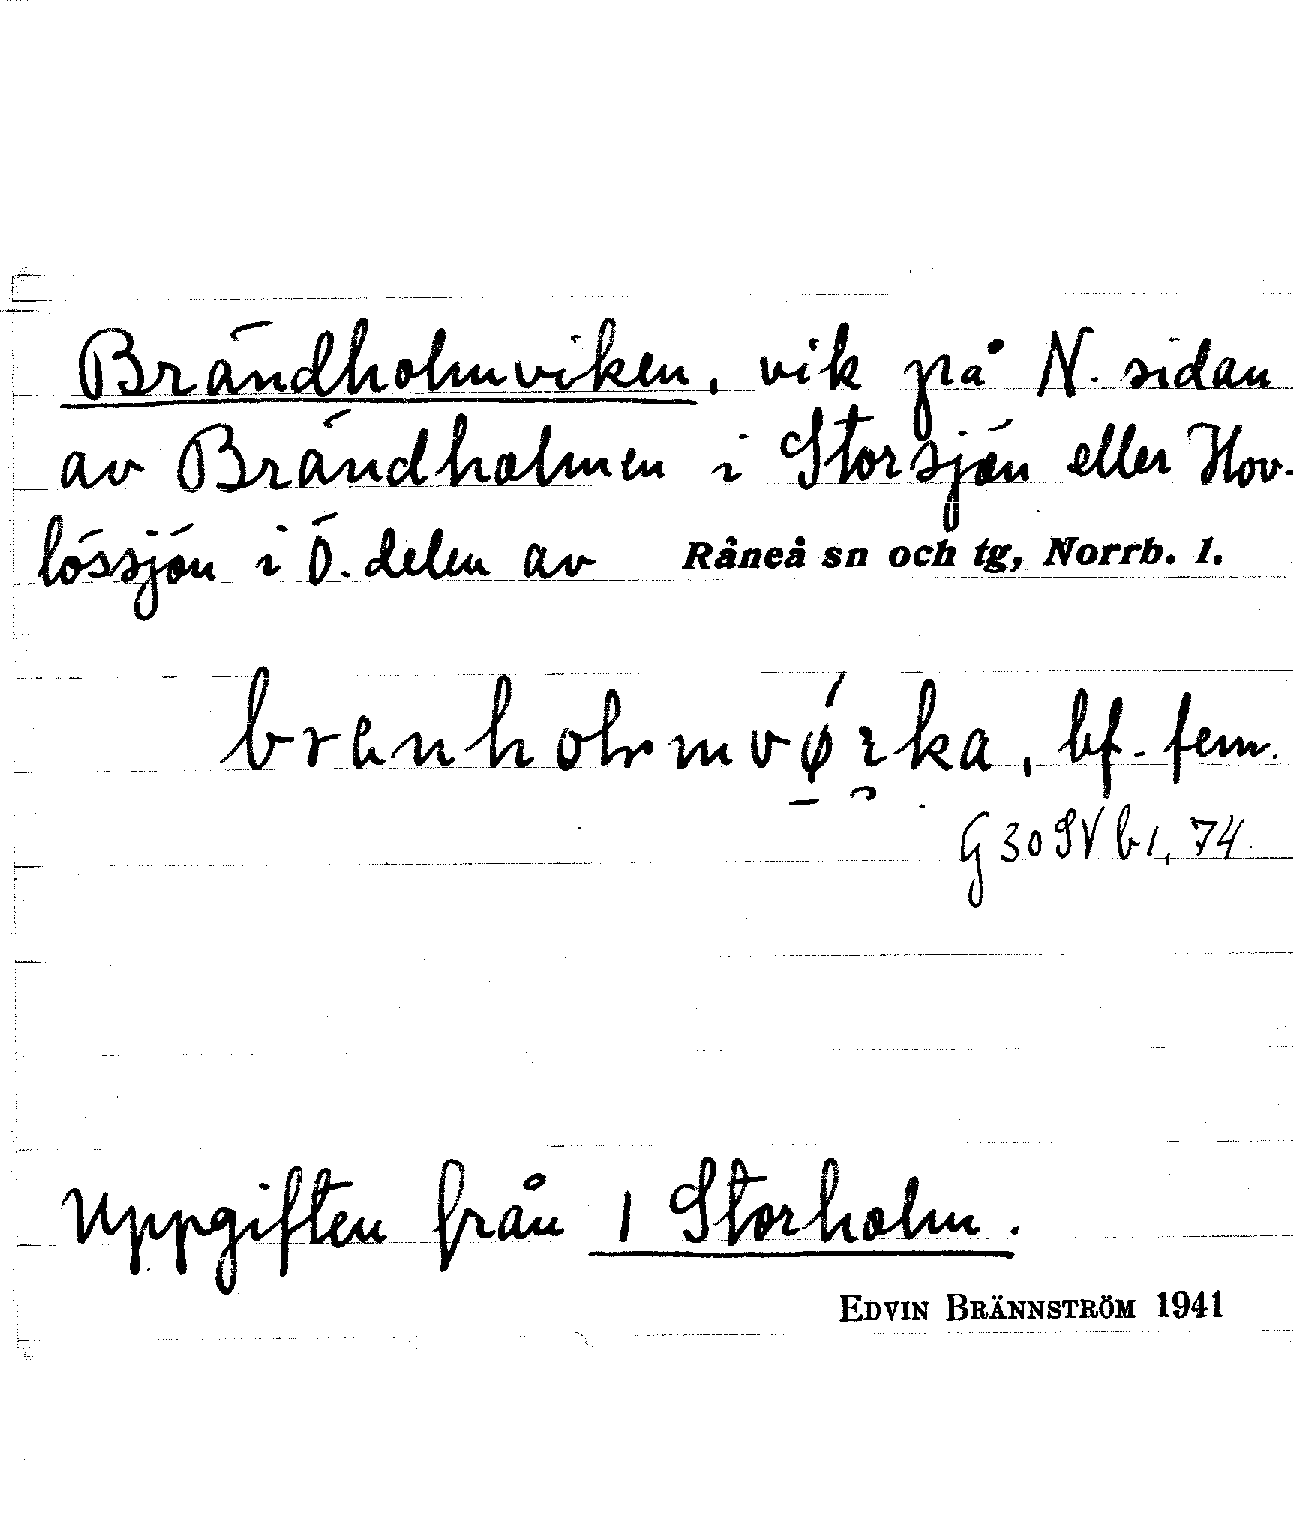 Brändholmviken, vik på N. sidan
av Brändholmen i Storsjön eller Hov-
lössjön i Ö. delen av Råneå sn och tg, Norrb. l.
bf. fem.
G 30 SV b1, 74.
Uppgiften från 1 Storholm.
EDVIN BRÄNNSTRÖM 1941